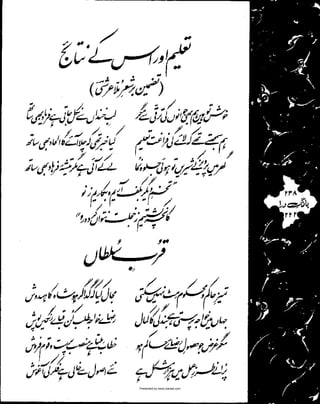 تعلیم اور اس کے نتائج
(تضمین بر شعر ملا عرشی)
خوش تو ہیں ہم بھی جوانوں کی ترقی سے مگر
لب خنداں سے نکل جاتی ہے فریاد بھی ساتھ
ہم سمجھتے تھے کہ لائے گی فراغت تعلیم
کیا خبر تھی کہ چلا آئے گا الحاد بھی ساتھ
گھر میں پرویز کے شیریں تو ہوئی جلوہ نما
لے کے آئی ہے مگر تیشۂ فرہاد بھی ساتھ
"تخم دیگر بکف آریم و بکاریم ز نو
کانچہ کشتیم ز خجلت نتواں کرد درو"
قربِ سلطاں
تمیز حاکم و محکوم مٹ نہیں سکتی
مجال کیا کہ گداگر ہو شاہ کا ہمدوش
جہاں میں خواجہ پرستی ہے بندگی کا کمال
رضاے خواجہ طلب کن قباے رنگیں پوش
مگر غرض جو حصول رضاے حاکم ہو
خطاب ملتا ہے منصب پرست و قوم فروش
پرانے طرز عمل میں ہزار مشکل ہے
نئے اصول سے خالی ہے فکر کی آغوش
۲۳۸
بانگ درا
۲۲۲